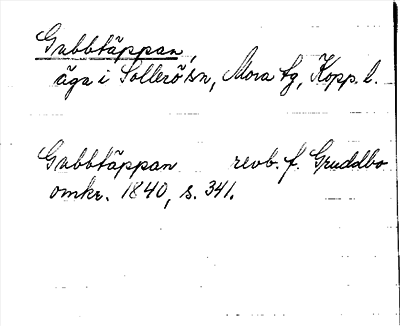 Gubbtäppan,
äga i Sollerö sn, Mora tg, Kopp. l.
Gubbtäppan revb. f. Gruddbo
omkr. 1840, s. 341.